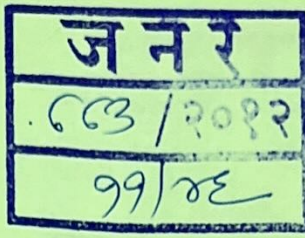 ज न र
७७३ / २०१२
११/४६